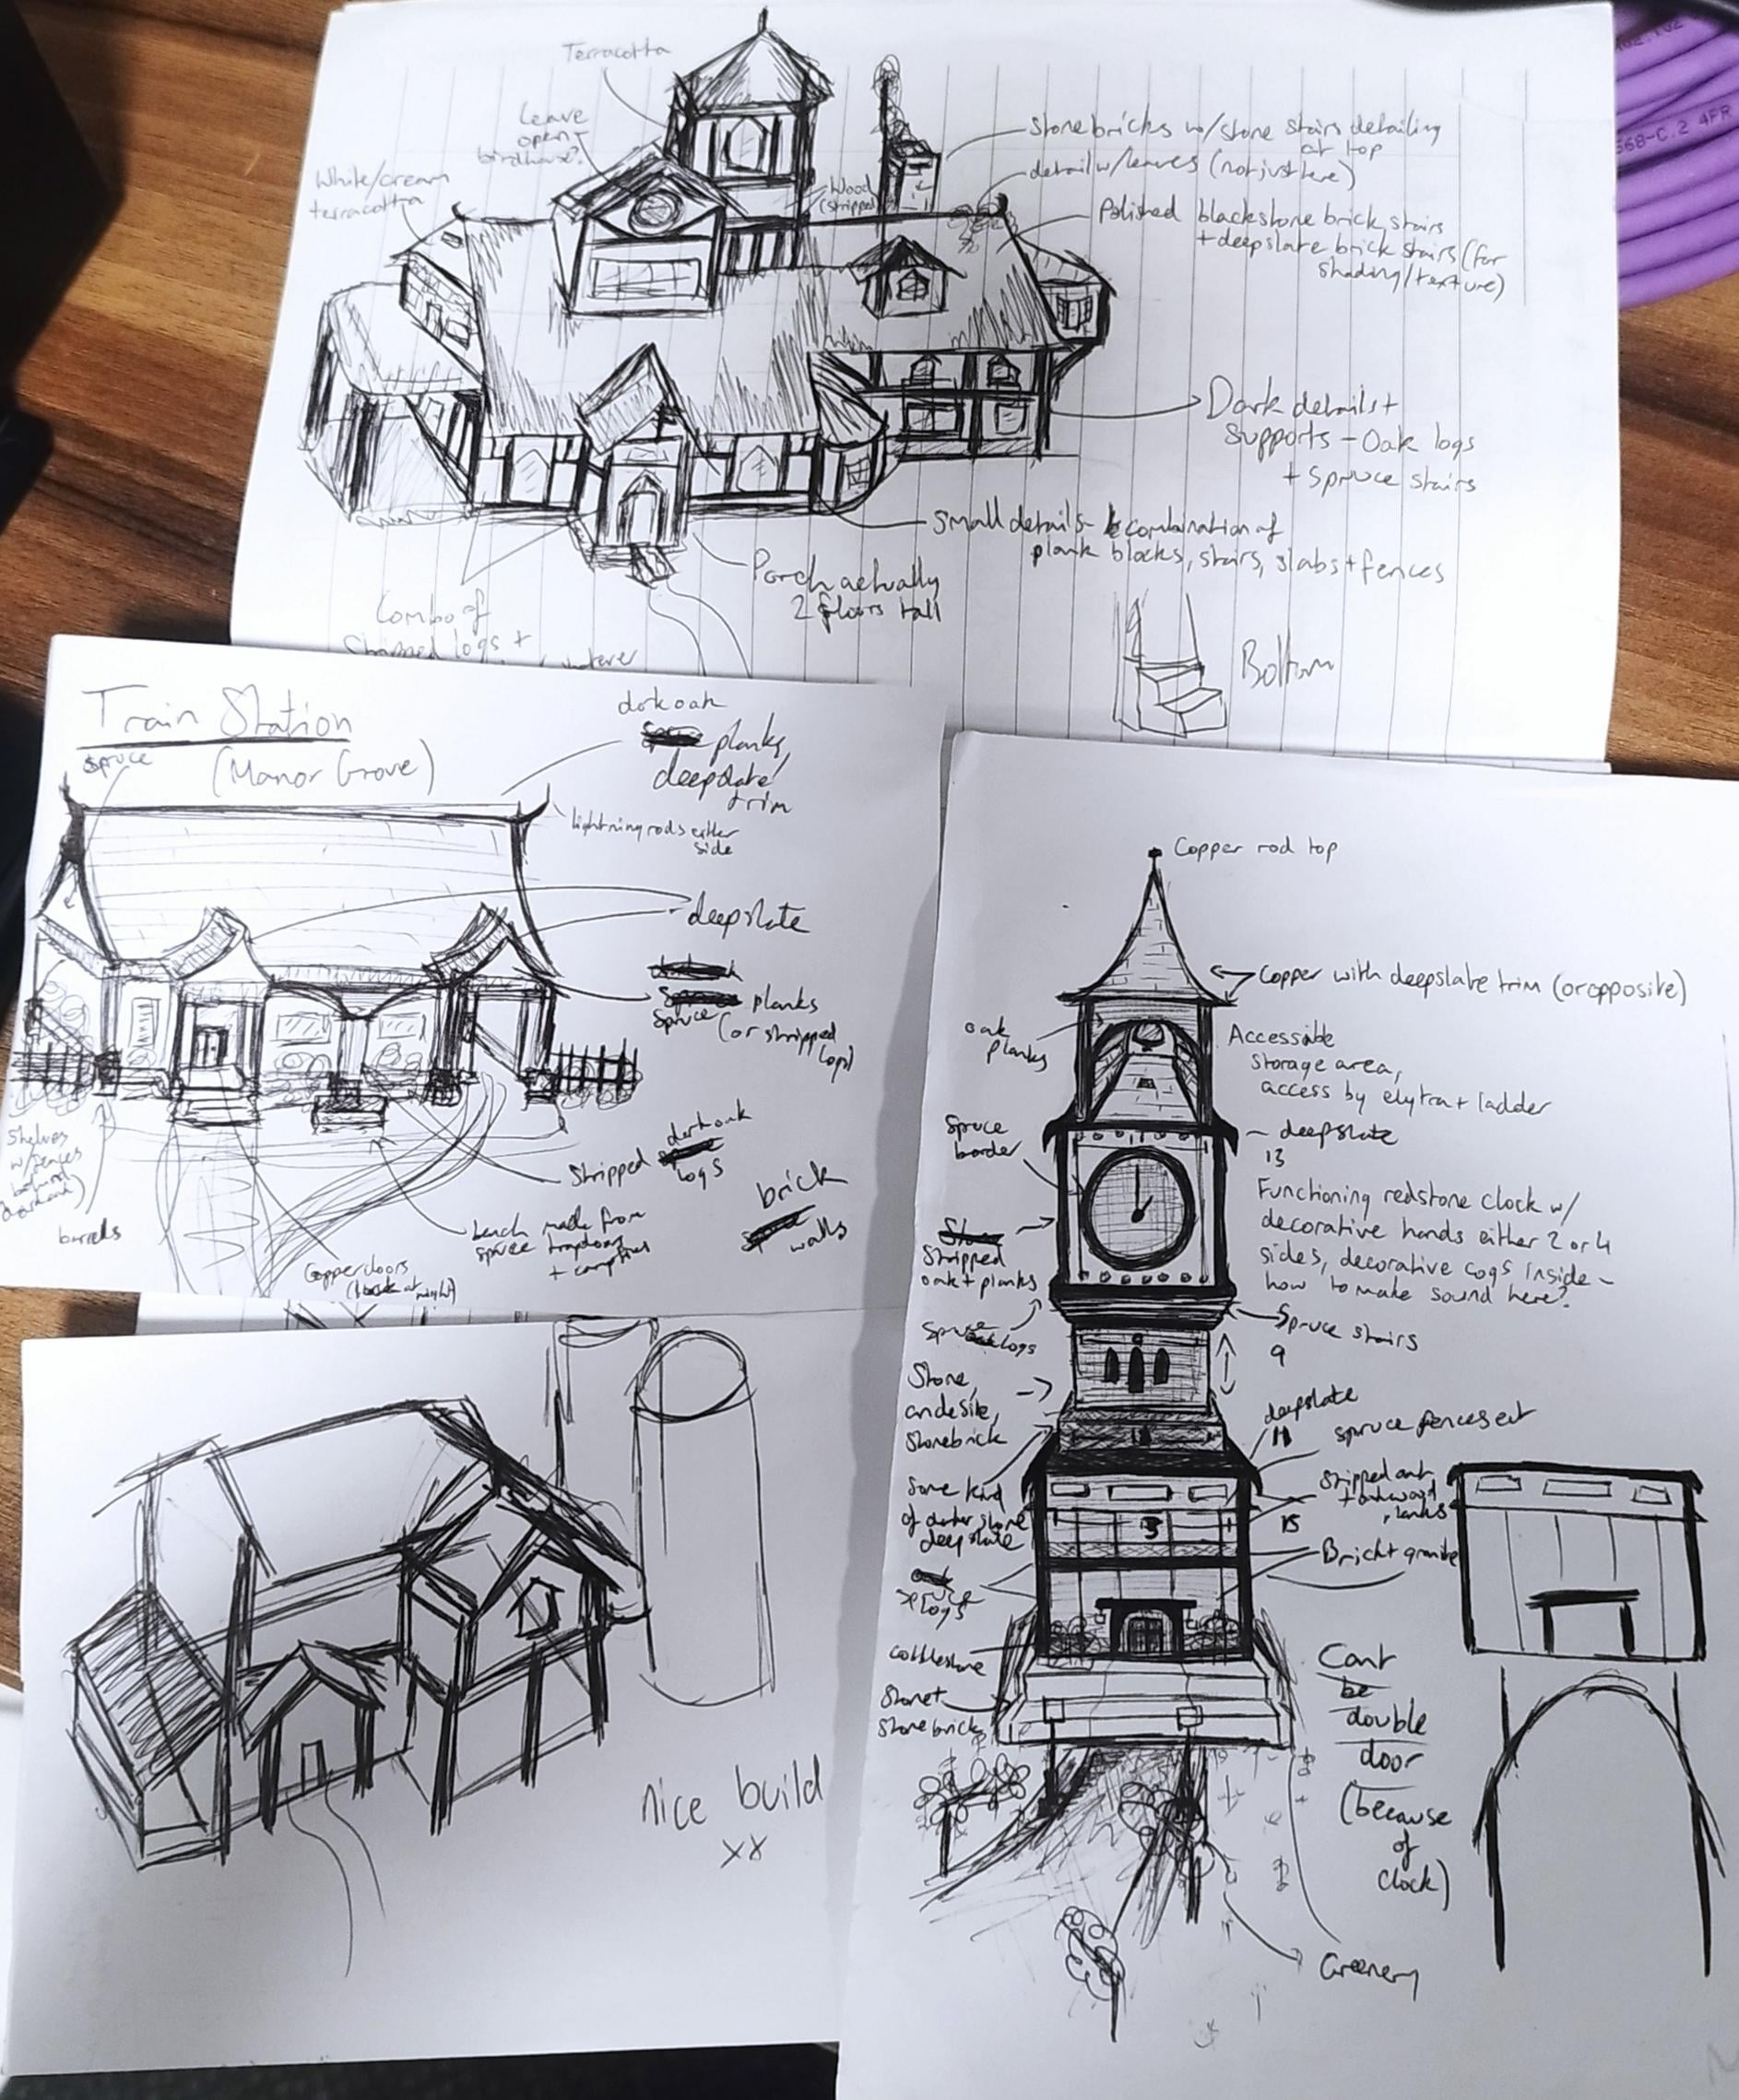 Terracotta
Leave
open -
birdhouse?
White/cream
terracotta
Wood
(stripped)
Stonebricks w/stone stairs detailing
at top
detail w/leaves (not just here)
Polished blackstone brick stairs
+ deepslate brick stairs (for
shading/texture)
Dark details +
supports - Oak logs
+ Spruce stairs
Small details - combination of
plank blocks, stairs, slabs + fences
Porch actually
2 floors tall
Combo of
Stripped logs +
Bottom
Train Station
(Manor Grove)
spruce
dark oak
planks,
deepslate
trim
lightning rods either
side
deepslate
planks
Spruce
(or stripped
logs)
Shelves
w/fences
behind
barrels
Stripped dark oak
logs
brick
walls
bench made from
spruce trapdoors
+ campfires
Copper doors
nice build
xx
Copper rod top
Copper with deepslate trim (or opposite)
oak
planks
Accessible
storage area,
access by elytra + ladder
Spruce
border
deepslate
13
Functioning redstone clock w/
decorative hands either 2 or 4
sides, decorative cogs inside -
how to make sound here?
Stripped
oak + planks
Spruce logs
Spruce stairs
9
Stone,
andesite,
stonebrick
deepslate
11
spruce fences
Some kind
of darker stone
deepslate
Stripped oak
planks
15
5
Brick + granite
logs
cobblestone
Stone +
stonebricks
Cant
be
double
door
(because
of
clock)
Greenery
568-C.2 4PR